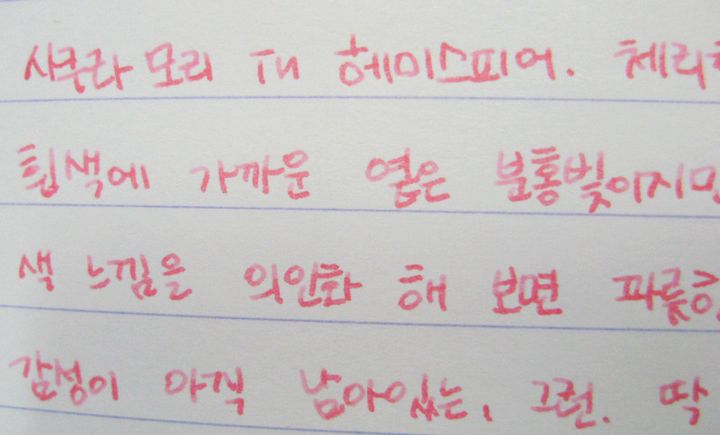 사쿠라 모리 in 헤미스피어. 체리
흰색에 가까운 옅은 분홍빛이지만
색 느낌을 의인화 해 보면 파릇한
감성이 아직 남아있는, 그런. 딱